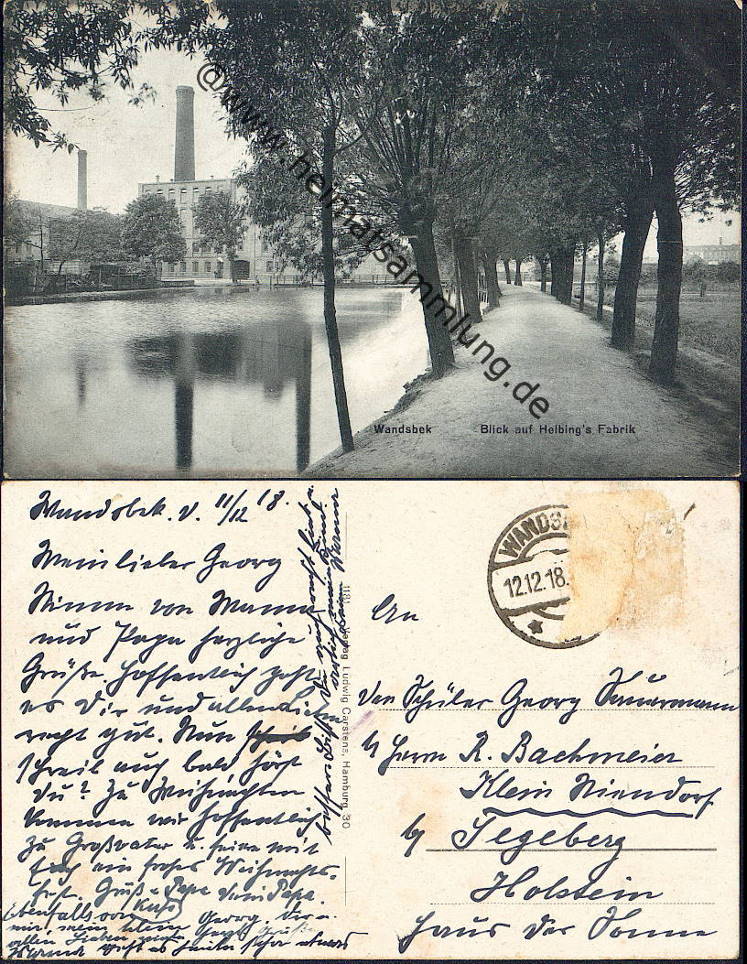 @www.heimatsammlung.de
Wandsbek Blick auf Helbing's Fabrik
Wandsbek. d. 11/12 18.
Mein lieber Georg
Nimm von Mama
und Papa herzliche
Grüße. Hoffentlich geht
es Dir und allen Lieben
recht gut. Nun
schreib auch bald hörst
Du? Zu Weihnachten
kommen wir hoffentlich
zu Großvater u. feiern mit
Euch ein frohes Weihnachts-
fest. Gruß u. Kuß Dein Papa.
Ebenfalls von
mir, mein kleiner Georg,
allen Lieben
1181 Verlag Ludwig Carstens, Hamburg 30
WANDSB
12.12.18.
An
den Schüler Georg Sauermann
b/ Herrn R. Bachmeier
Klein Niendorf
b/ Segeberg
Holstein
Haus der Sonne